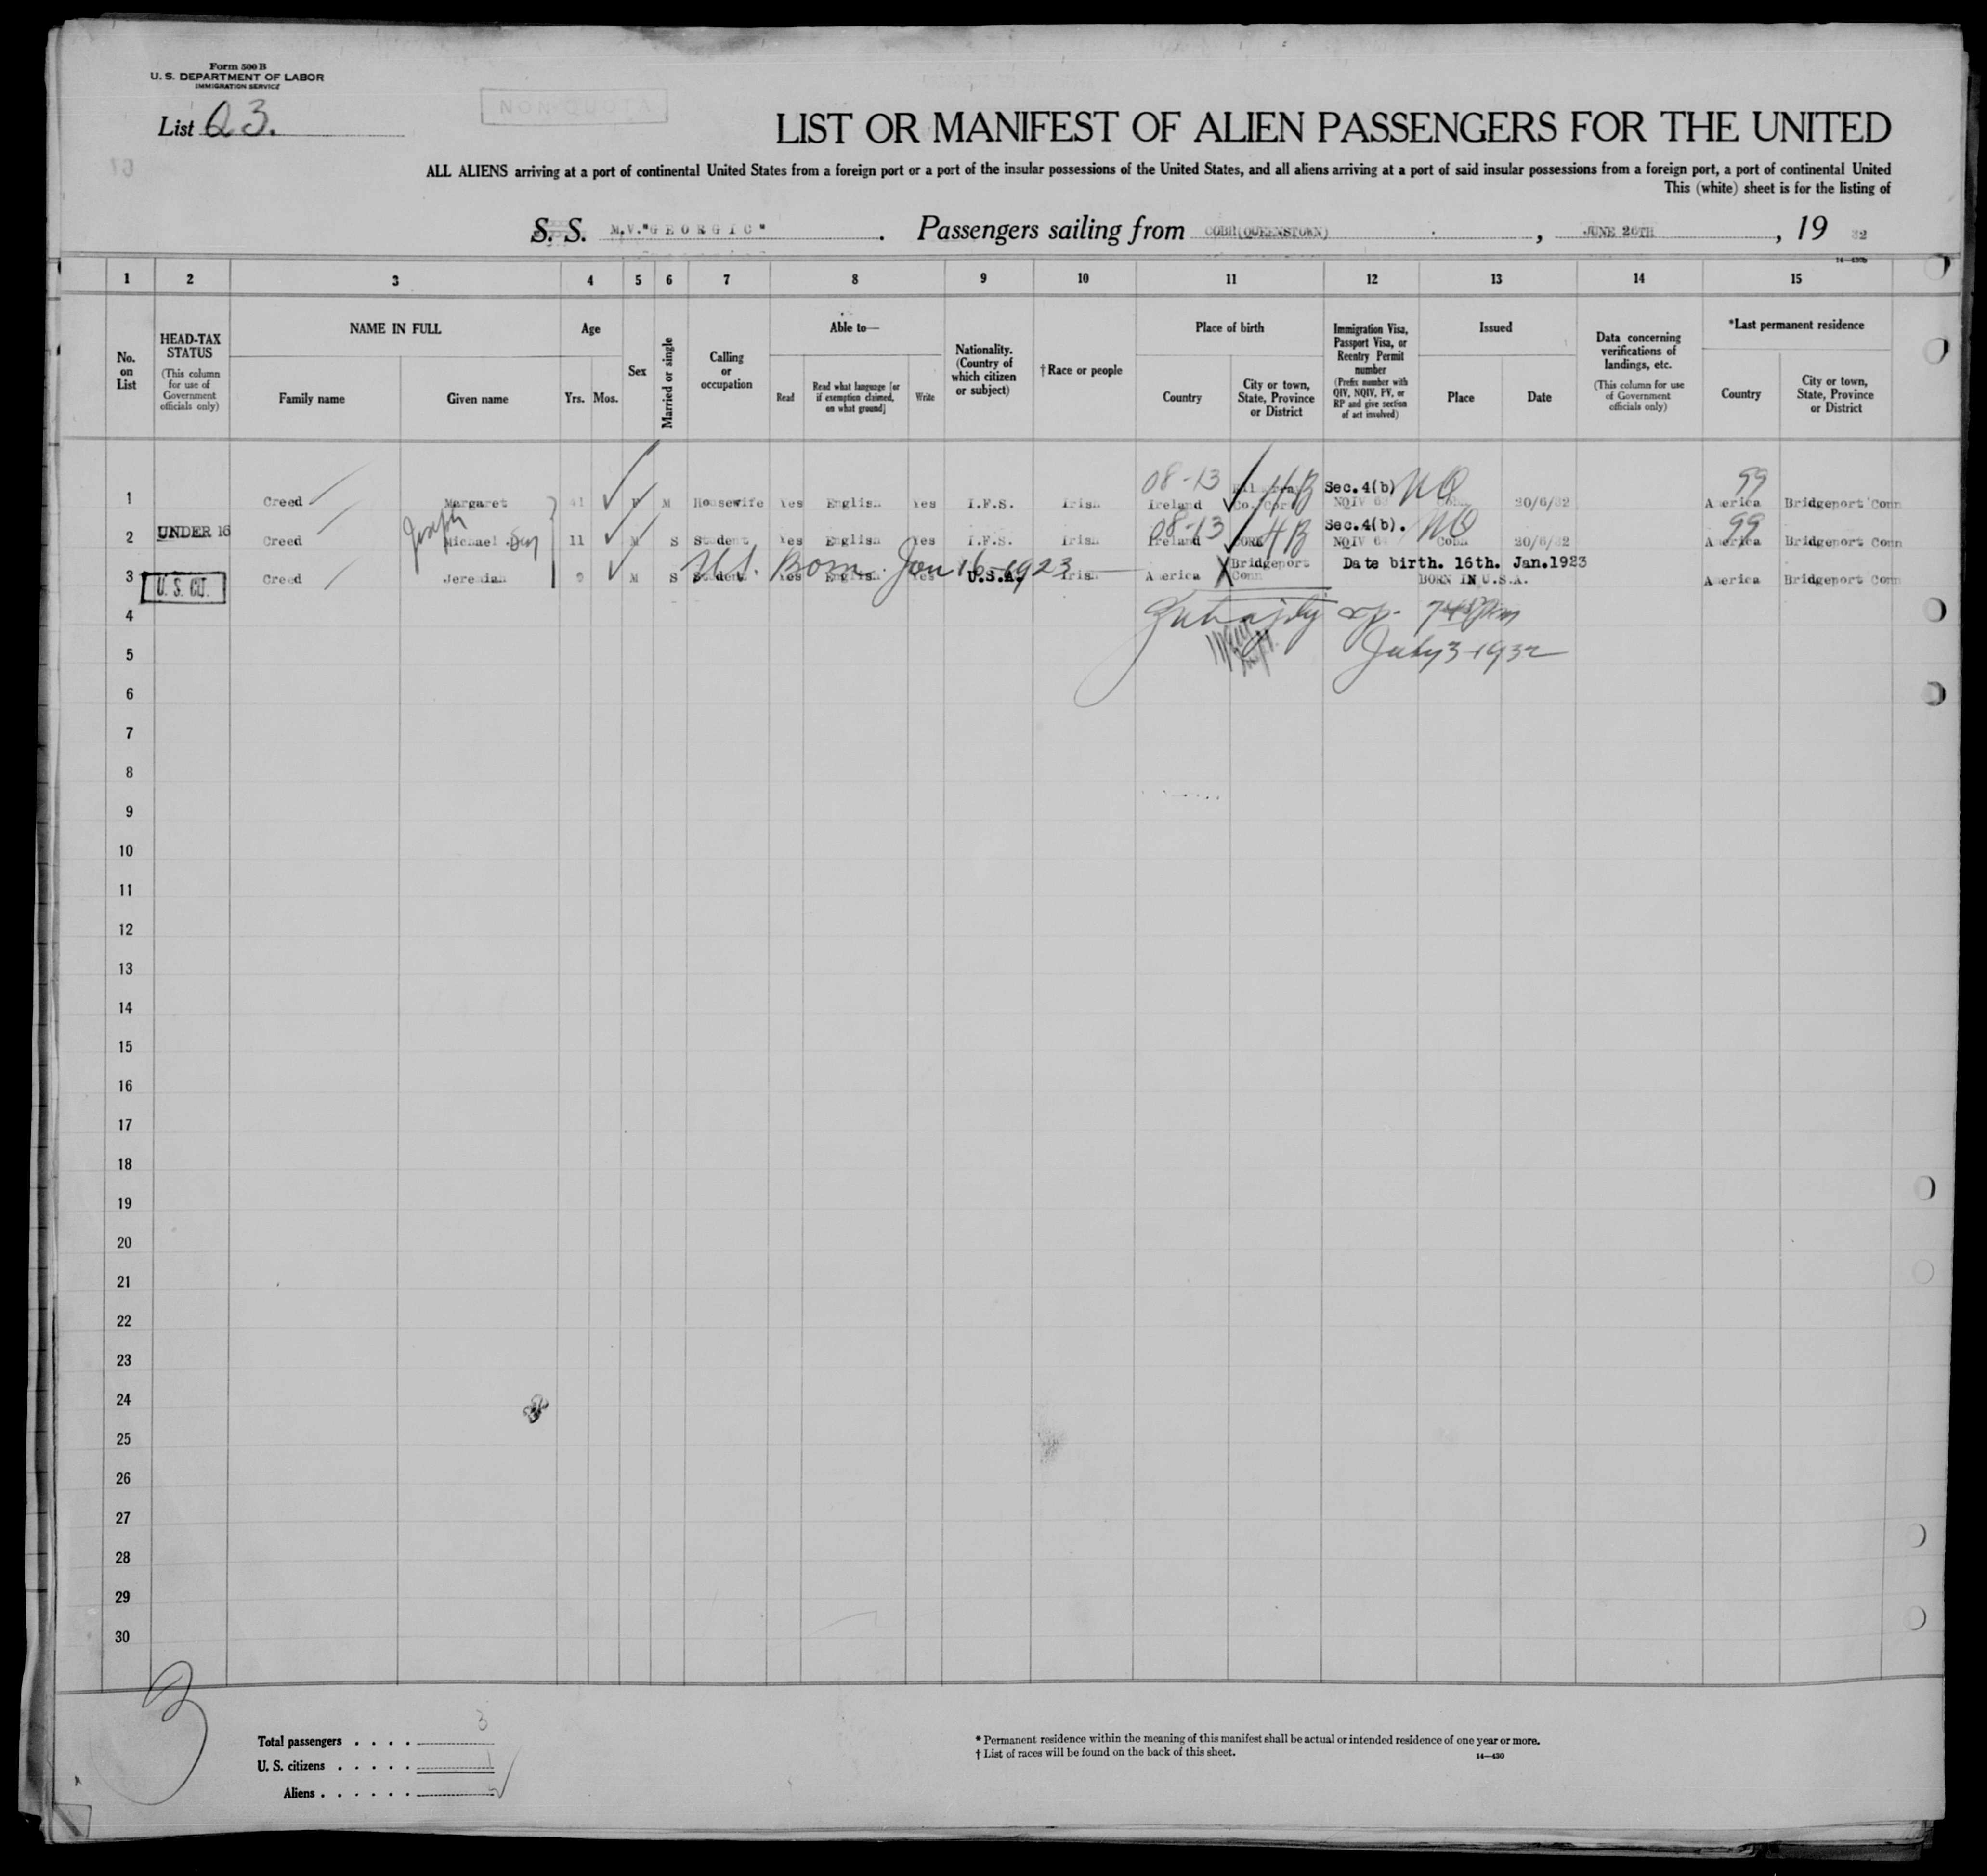 Form 500 B
U. S. DEPARTMENT OF LABOR
IMMIGRATION SERVICE
List Q 3.
NON QUOTA
LIST OR MANIFEST OF ALIEN PASSENGERS FOR THE UNITED
ALL ALIENS arriving at a port of continental United States from a foreign port or a port of the insular possessions of the United States, and all aliens arriving at a port of said insular possessions from a foreign port, a port of continental United
This (white) sheet is for the listing of
S. S. M.V."GEORGIC". Passengers sailing from COBH(QUEENSTOWN), JUNE 26TH, 19 32
14—430b
1 2 3 4 5 6 7 8 9 10 11 12 13 14 15
No. on List
HEAD-TAX STATUS (This column for use of Government officials only)
NAME IN FULL
Family name Given name
Age
Yrs. Mos.
Sex
Married or single
Calling or occupation
Able to—
Read Read what language [or if exemption claimed, on what ground] Write
Nationality. (Country of which citizen or subject)
†Race or people
Place of birth
Country City or town, State, Province or District
Immigration Visa, Passport Visa, or Reentry Permit number (Prefix number with QIV, NQIV, PV, or RP and give section of act involved)
Issued
Place Date
Data concerning verifications of landings, etc. (This column for use of Government officials only)
*Last permanent residence
Country City or town, State, Province or District
08-13 4B Sec.4(b) NQ 99
1 Creed Margaret 41 F M Housewife Yes English Yes I.F.S. Irish Ireland Co. Cork NQIV Cobh 20/6/32 America Bridgeport Conn
Joseph 08-13 4B Sec.4(b). NQ 99
2 UNDER 16 Creed Michael 11 M S Student Yes English Yes I.F.S. Irish Ireland CORK NQIV Cobh 20/6/32 America Bridgeport Conn
U.S. Born. Jan 16-1923 Bridgeport Date birth. 16th. Jan.1923
3 U. S. CIT. Creed Jeremiah 9 M S Student Yes English Yes U.S.A. Irish America Conn BORN IN U.S.A. America Bridgeport Conn
4
July 3-1932
5
6
7
8
9
10
11
12
13
14
15
16
17
18
19
20
21
22
23
24
25
26
27
28
29
30
3
Total passengers . . . . 3
U. S. citizens . . . . . 1
Aliens . . . . . .
* Permanent residence within the meaning of this manifest shall be actual or intended residence of one year or more.
† List of races will be found on the back of this sheet.
14—430